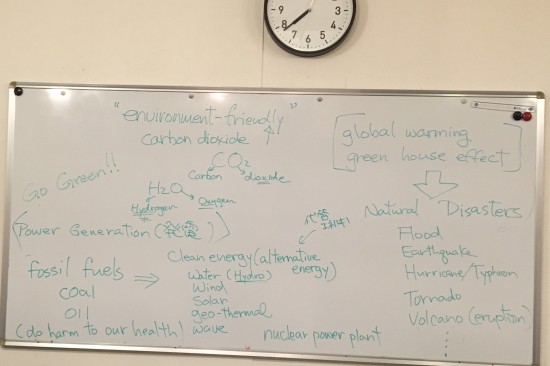 "environment-friendly"
carbon dioxide
CO2
Carbon dioxide
Go Green!!
H2O
Hydrogen Oxygen
Power Generation (発電)
fossil fuels ⇒
coal
oil
(do harm to our health)
Clean energy (alternative
energy)
water (Hydro)
Wind
Solar
geo-thermal
wave
nuclear power plant
global warming
green house effect
Natural Disasters
Flood
Earthquake
Hurricane/Typhoon
Tornado
Volcano (eruption)
9 8 7 6 5 4 3